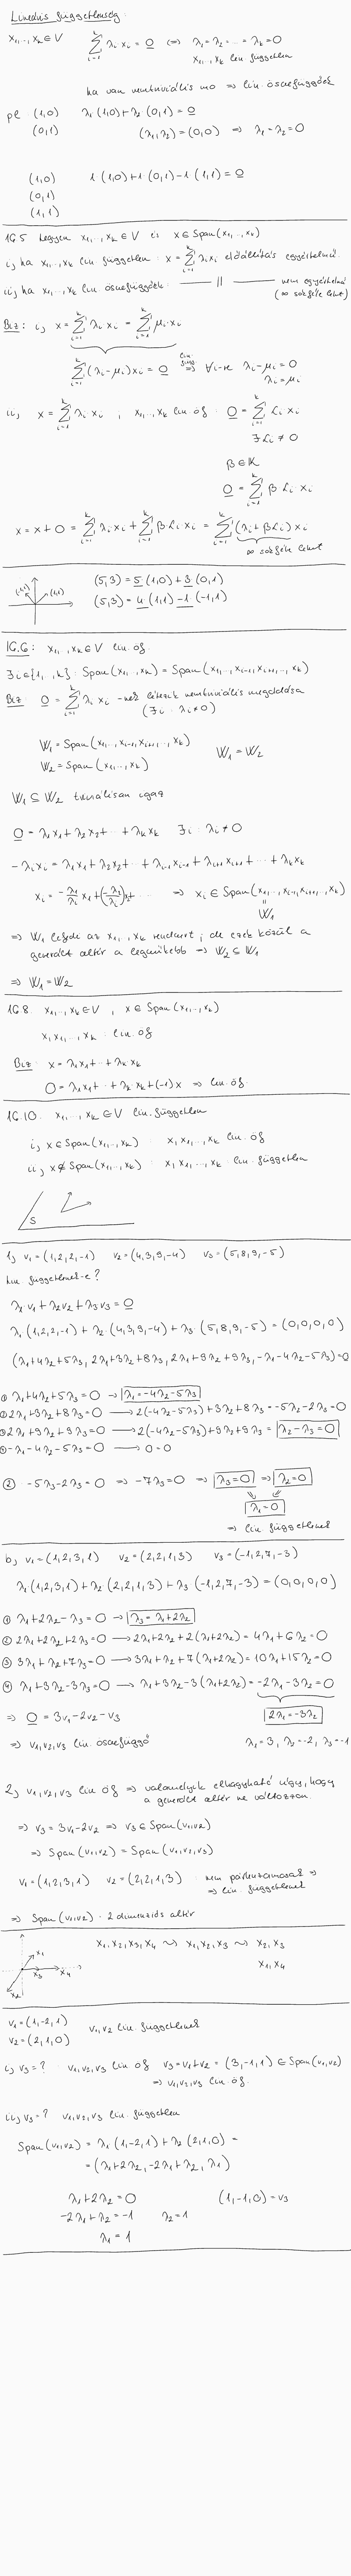 Lineáris függetlenség:
x₁,..,xₖ ∈ V   Σ_{i=1}^{k} λᵢ xᵢ = 0 ⇔ λ₁=λ₂=...=λₖ=0
x₁,..,xₖ lin független
ha van nemtriviális mo ⇒ lin összefüggőek
pl (1,0)   λ₁(1,0)+λ₂(0,1)=0
(0,1)   (λ₁,λ₂)=(0,0) ⇒ λ₁=λ₂=0
(1,0)   1·(1,0)+1·(0,1)-1·(1,1)=0
(0,1)
(1,1)
16.5 Legyen x₁,..,xₖ ∈ V és x ∈ Span(x₁,..,xₖ)
i, ha x₁,..,xₖ lin. független: x = Σ_{i=1}^{k} λᵢxᵢ előállítás egyértelmű.
ii, ha x₁,..,xₖ lin. összefüggőek: —— || —— nem egyértelmű
(∞ sokféle lehet)
Biz: i, x = Σ_{i=1}^{k} λᵢ xᵢ = Σ_{i=1}^{k} μᵢ·xᵢ
Σ_{i=1}^{k} (λᵢ-μᵢ)xᵢ = 0 ⇒ (lin. függ) ∀i-re λᵢ-μᵢ=0
λᵢ=μᵢ
ii, x = Σ_{i=1}^{k} λᵢ·xᵢ , x₁,..,xₖ lin öf: 0 = Σ_{i=1}^{k} αᵢ xᵢ
∃ αᵢ ≠ 0
β ∈ K
0 = Σ_{i=1}^{k} β·αᵢ·xᵢ
x = x+0 = Σ_{i=1}^{k} λᵢxᵢ + Σ_{i=1}^{k} β·αᵢ xᵢ = Σ_{i=1}^{k} (λᵢ+βαᵢ)xᵢ
∞ sokféle lehet
(-1,1)   (1,1)   (5,3) = 5·(1,0)+3·(0,1)
(5,3) = 4·(1,1)-1·(-1,1)
16.6: x₁,..,xₖ ∈ V lin. öf.
∃ i∈{1,..,k}: Span(x₁,..,xₖ) = Span(x₁,..,xᵢ₋₁,xᵢ₊₁,..,xₖ)
Biz: 0 = Σ_{i=1}^{k} λᵢ xᵢ -nek létezik nemtriviális megoldása
(∃i: λᵢ≠0)
W₁ = Span(x₁,..,xᵢ₋₁,xᵢ₊₁,..,xₖ)   W₁ = W₂
W₂ = Span(x₁,..,xₖ)
W₁ ⊆ W₂ triviálisan igaz
0 = λ₁x₁+λ₂x₂+..+λₖxₖ   ∃i: λᵢ≠0
-λᵢxᵢ = λ₁x₁+λ₂x₂+..+λᵢ₋₁xᵢ₋₁+λᵢ₊₁xᵢ₊₁+..+λₖxₖ
xᵢ = -λ₁/λᵢ x₁+(-λ₂/λᵢ)x₂+... ⇒ xᵢ ∈ Span(x₁,..,xᵢ₋₁,xᵢ₊₁,..,xₖ)
||
W₁
⇒ W₁ lefedi az x₁,..,xₖ rendszert; de ezek közül a
generált altér a legszűkebb ⇒ W₂ ⊆ W₁
⇒ W₁=W₂
16.8. x₁,..,xₖ ∈ V , x ∈ Span(x₁,..,xₖ)
x,x₁,..,xₖ: lin. öf
Biz: x = λ₁x₁+..+λₖxₖ
0 = λ₁x₁+..+λₖxₖ+(-1)x ⇒ lin. öf.
16.10. x₁,..,xₖ ∈ V lin. független
i, x ∈ Span(x₁,..,xₖ): x,x₁,..,xₖ lin. öf
ii, x ∉ Span(x₁,..,xₖ): x,x₁,..,xₖ: lin. független
S
1, v₁=(1,2,2,-1)   v₂=(4,3,9,-4)   v₃=(5,8,9,-5)
lin. függetlenek-e?
λ₁v₁+λ₂v₂+λ₃v₃=0
λ₁(1,2,2,-1)+λ₂·(4,3,9,-4)+λ₃·(5,8,9,-5)=(0,0,0,0)
(λ₁+4λ₂+5λ₃, 2λ₁+3λ₂+8λ₃, 2λ₁+9λ₂+9λ₃, -λ₁-4λ₂-5λ₃)=0
① λ₁+4λ₂+5λ₃=0 → λ₁=-4λ₂-5λ₃
② 2λ₁+3λ₂+8λ₃=0 → 2(-4λ₂-5λ₃)+3λ₂+8λ₃=-5λ₂-2λ₃=0
③ 2λ₁+9λ₂+9λ₃=0 → 2(-4λ₂-5λ₃)+9λ₂+9λ₃=λ₂-λ₃=0
④ -λ₁-4λ₂-5λ₃=0 → 0=0
② -5λ₃-2λ₃=0 ⇒ -7λ₃=0 ⇒ λ₃=0 ⇒ λ₂=0
λ₁=0
⇒ lin függetlenek
b, v₁=(1,2,3,1)   v₂=(2,2,1,3)   v₃=(-1,2,7,-3)
λ₁(1,2,3,1)+λ₂(2,2,1,3)+λ₃(-1,2,7,-3)=(0,0,0,0)
① λ₁+2λ₂-λ₃=0 → λ₃=λ₁+2λ₂
② 2λ₁+2λ₂+2λ₃=0 → 2λ₁+2λ₂+2(λ₁+2λ₂)=4λ₁+6λ₂=0
③ 3λ₁+λ₂+7λ₃=0 → 3λ₁+λ₂+7(λ₁+2λ₂)=10λ₁+15λ₂=0
④ λ₁+3λ₂-3λ₃=0 → λ₁+3λ₂-3(λ₁+2λ₂)=-2λ₁-3λ₂=0
⇒ 0=3v₁-2v₂-v₃   2λ₁=-3λ₂
⇒ v₁,v₂,v₃ lin. összefüggő   λ₁=3, λ₂=-2, λ₃=-1
2, v₁,v₂,v₃ lin öf ⇒ valamelyik elhagyható úgy, hogy
a generált altér ne változzon.
⇒ v₃=3v₁-2v₂ ⇒ v₃ ∈ Span(v₁,v₂)
⇒ Span(v₁,v₂) = Span(v₁,v₂,v₃)
v₁=(1,2,3,1)   v₂=(2,2,1,3): nem párhuzamosak ⇒
⇒ lin. függetlenek
⇒ Span(v₁,v₂): 2 dimenziós altér
x₁ x₂ x₃ x₄   x₁,x₂,x₃,x₄ ⤳ x₁,x₂,x₃ ⤳ x₂,x₃
x₁,x₄
v₁=(1,-2,1)   v₁,v₂ lin. függetlenek
v₂=(2,1,0)
i, v₃=? v₁,v₂,v₃ lin öf   v₃=v₁+v₂=(3,-1,1) ∈ Span(v₁,v₂)
⇒ v₁,v₂,v₃ lin. öf.
ii, v₃=? v₁,v₂,v₃ lin. független
Span(v₁,v₂) = λ₁(1,-2,1)+λ₂(2,1,0) =
=(λ₁+2λ₂, -2λ₁+λ₂, λ₁)
λ₁+2λ₂=0   (1,-1,0)=v₃
-2λ₁+λ₂=-1   λ₂=1
λ₁=1